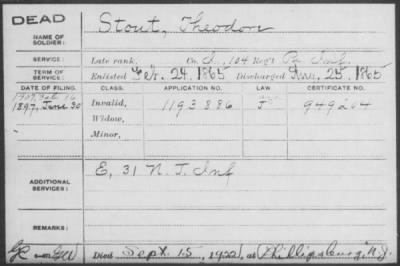 DEAD
NAME OF SOLDIER: Stout, Theodor
SERVICE: Late rank, Co. I, 104 Reg't Pa. Inf.
TERM OF SERVICE: Enlisted Feb. 24, 1865 Discharged Aug. 25, 1865
DATE OF FILING. CLASS. APPLICATION NO. LAW CERTIFICATE NO.
1897, June 30 Invalid, 1193886 949264
Widow,
Minor,
ADDITIONAL SERVICES: E, 31 N. J. Inf
REMARKS:
Died Sept. 15, 1922, at Phillipsburg, N.J.